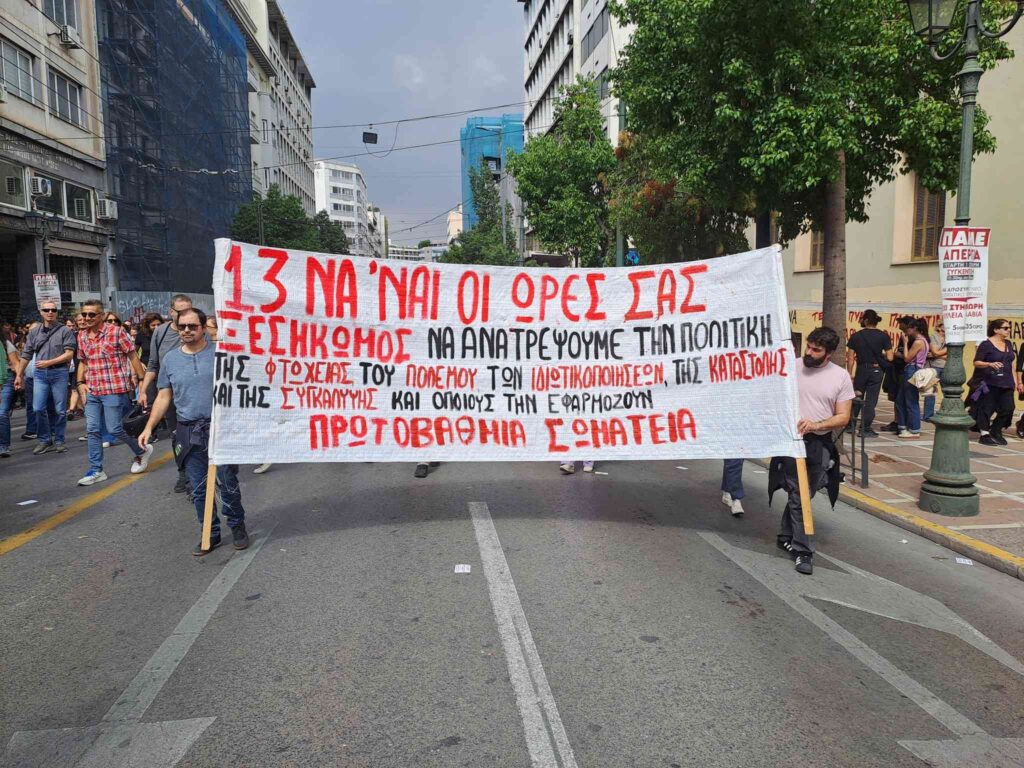 13 ΝΑ 'ΝΑΙ ΟΙ ΩΡΕΣ ΣΑΣ
ΞΕΣΗΚΩΜΟΣ ΝΑ ΑΝΑΤΡΕΨΟΥΜΕ ΤΗΝ ΠΟΛΙΤΙΚΗ
ΤΗΣ ΦΤΩΧΕΙΑΣ ΤΟΥ ΠΟΛΕΜΟΥ ΤΩΝ ΙΔΙΩΤΙΚΟΠΟΙΗΣΕΩΝ, ΤΗΣ ΚΑΤΑΣΤΟΛΗΣ
ΚΑΙ ΤΗΣ ΣΥΓΚΑΛΥΨΗΣ ΚΑΙ ΟΠΟΙΟΥΣ ΤΗΝ ΕΦΑΡΜΟΖΟΥΝ
ΠΡΩΤΟΒΑΘΜΙΑ ΣΩΜΑΤΕΙΑ
ΠΑΜΕ
ΑΠΕΡΓΙΑ